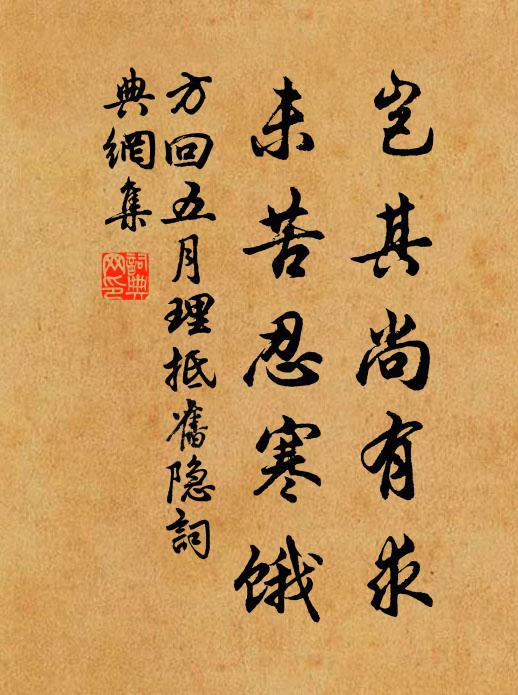 岂其尚有求
未苦忍寒饿
方回五月理抵舊隐詞
典網集
詞典網印